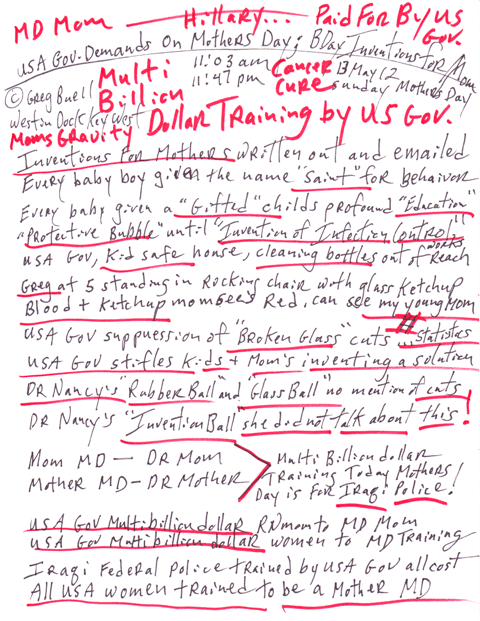 MD Mom — Hillary... Paid For By US Gov.
USA Gov. Demands On Mothers Day; BDay Inventions for Mom
11:03 am
11:47 pm
Cancer Cure
13 May 12
Sunday Mothers Day
© Greg Buell
Weston Dock Key West
Multi Billion
Moms Gravity Dollar Training by US Gov.
Inventions For Mothers written out and emailed
Every baby boy given the name "Saint" for behaivor
Every baby given a "Gifted" childs profound "Education"
"Protective Bubble" until "Invention of Infection Control"
works
USA Gov, Kid safe house, cleaning bottles out of Reach
Greg at 5 standing in Rocking chair with glass Ketchup
Blood + Ketchup mom sees Red, can see my young Mom
USA Gov suppression of "Broken Glass" cuts # ...Statistics
USA Gov stifles Kids + Mom's inventing a solution
DR Nancy's "Rubber Ball" and "Glass Ball" no mention of cuts
DR Nancy's "Invention Ball" she did not talk about this!
Mom MD — DR Mom
Mother MD – DR Mother
Multi Billion dollar
Training Today Mothers
Day is for Iraqi Police!
USA Gov Multi billion dollar RN mom to MD Mom
USA Gov Multi billion dollar women to MD Training
Iraqi Federal Police trained by USA Gov all cost
All USA women trained to be a Mother MD